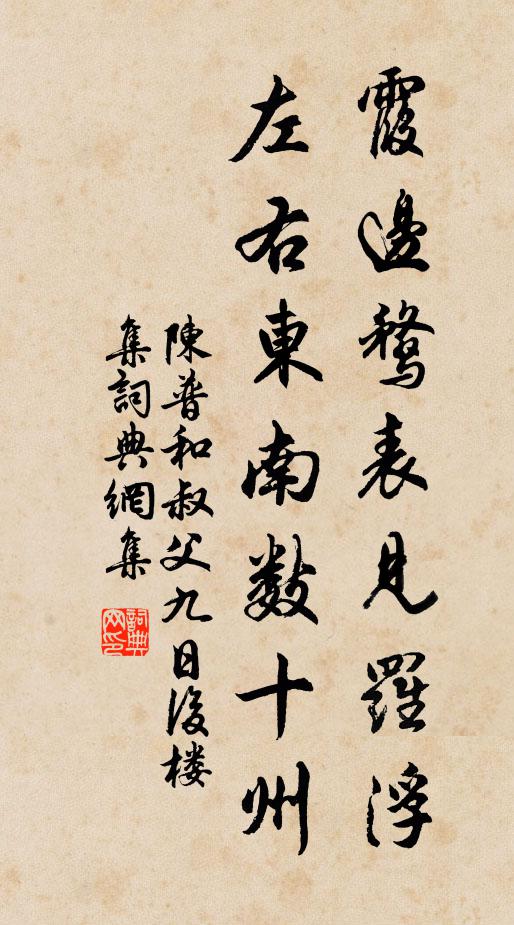 霞邊鶩表見羅浮
左右東南數十州
陳普和叔父九日後樓
集詞典網集
詞典网印